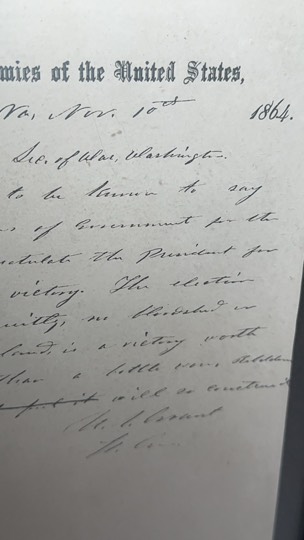 mies of the United States,
Va, Nov. 10th 1864.
Sec. of War, Washington.
to be known to say
of Government for the
the President for
victory. The election
quietly, no bloodshed or
land, is a victory worth
than a battle won.
will so construe
U. S. Grant
Lt. Gen.